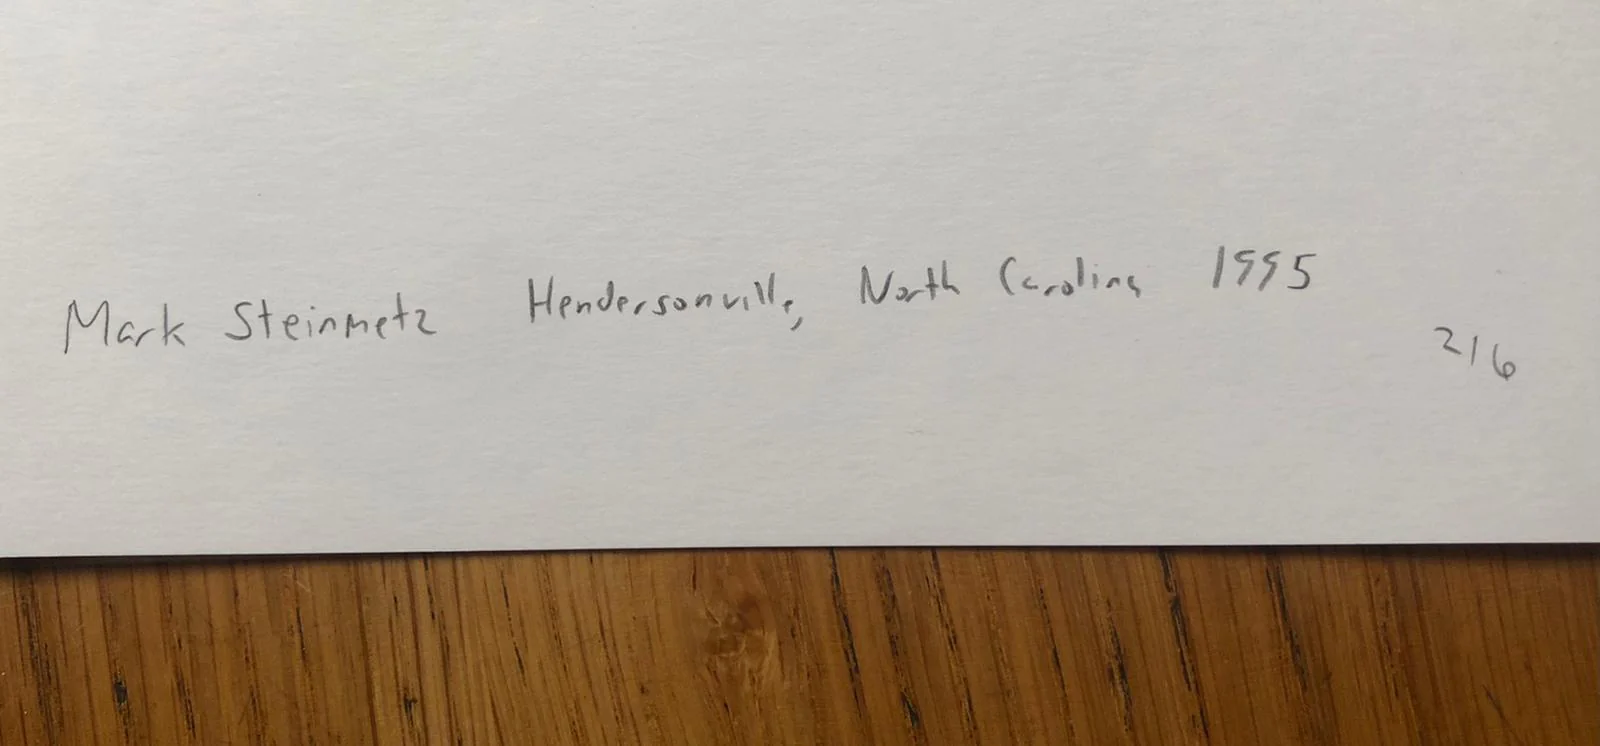 Mark Steinmetz Hendersonville, North Carolina 1995
2/6